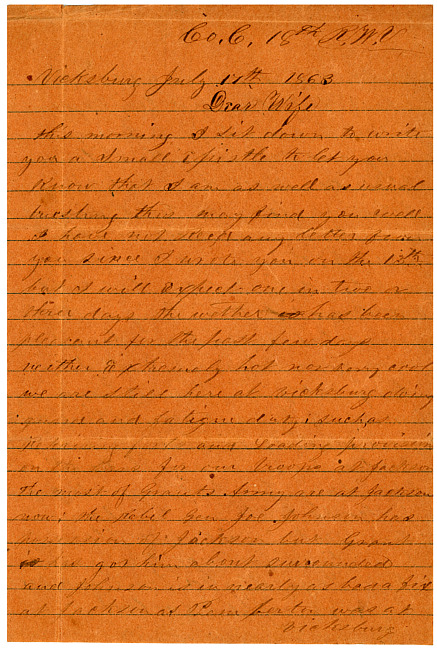 Co. C, 18th R.W.V
Vicksburg July 17th 1863
Dear Wife
this morning I sit down to write
you a Small Epistle to let you
Know that I am as well as usual
this may find you well
I have not any letter from
you since I wrote you on the 13th
but I will expect one in two or
three days the wether has been
pleasant for the past few days
neither extremely hot nor very cool
we are still here at vicksburg doing
guard and fatigue duty; such as
and loading provision
on the cars for our troops at Jackson
The most of Grants Army are at Jackson
now; the Rebel Gen Joe Johnson has
of Jackson but Grant
has got him about surrounded
and Johnson is in nearly as bad a fix
at Jackson as Pemberton was at
Vicksburg